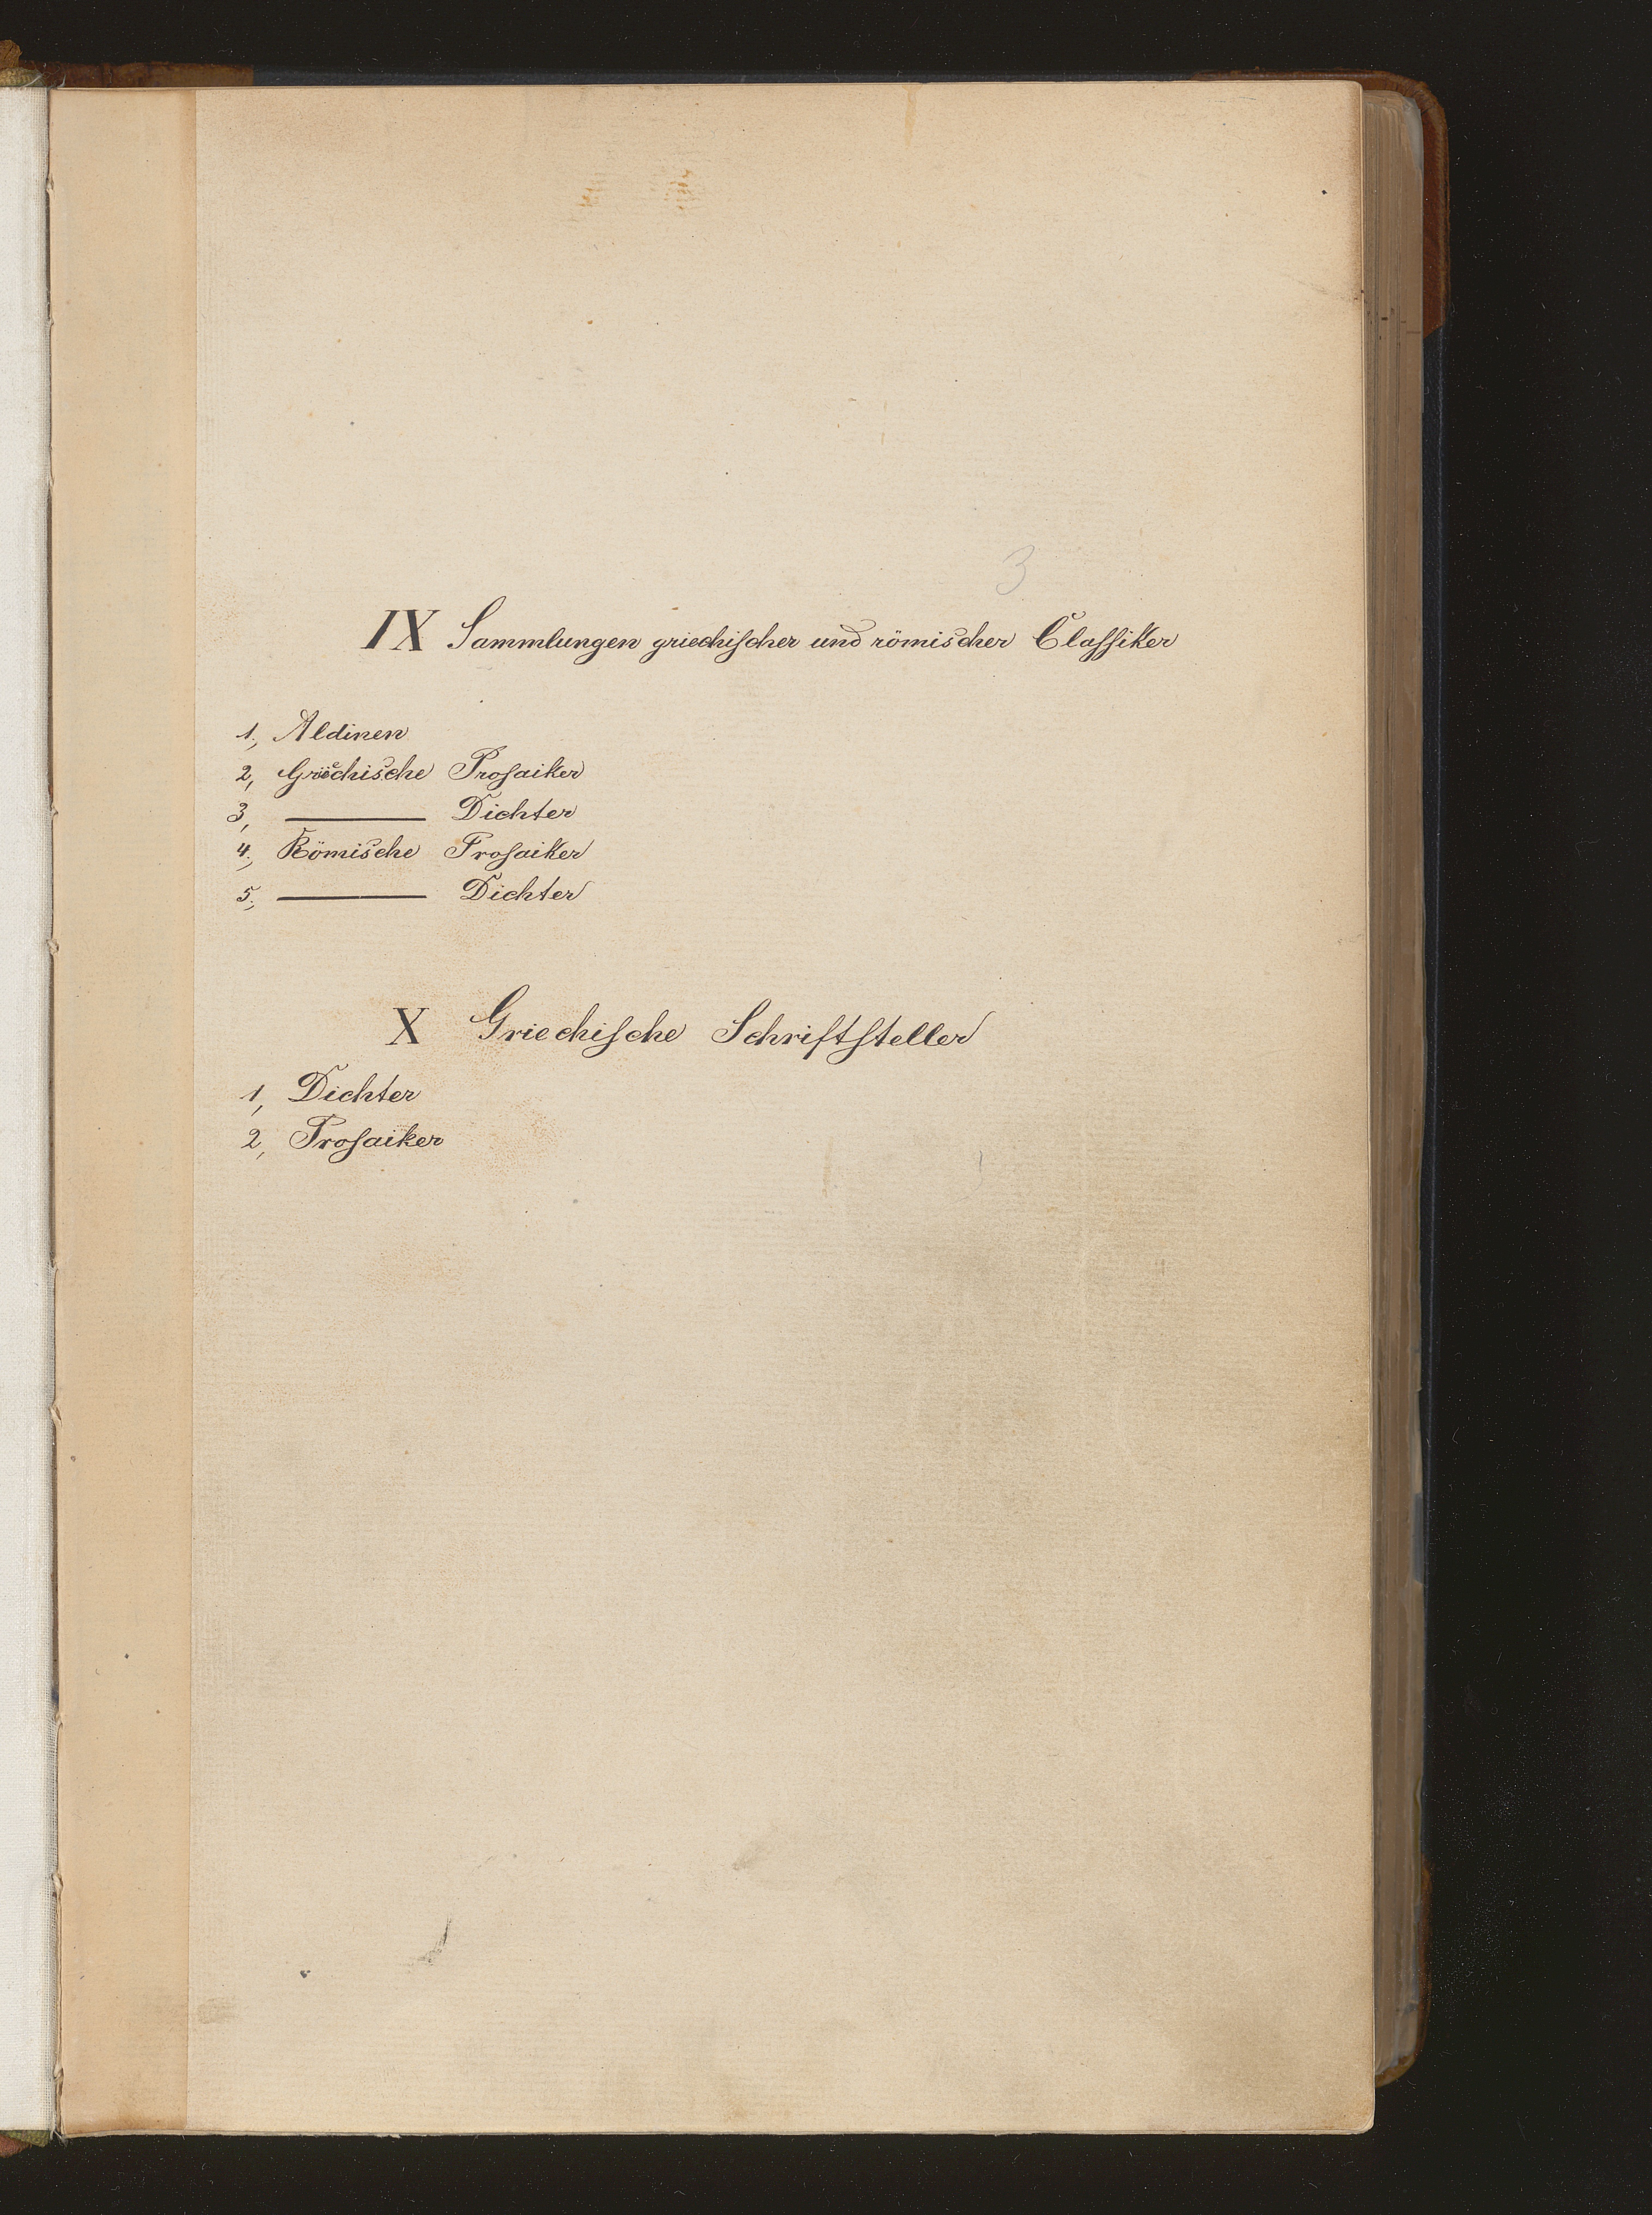 3
IX Sammlungen griechischer und römischer Classiker
1., Aldinen
2, Griechische Prosaiker
3, ——— Dichter
4., Römische Prosaiker
5., ——— Dichter
X Griechische Schriftsteller
1, Dichter
2, Prosaiker